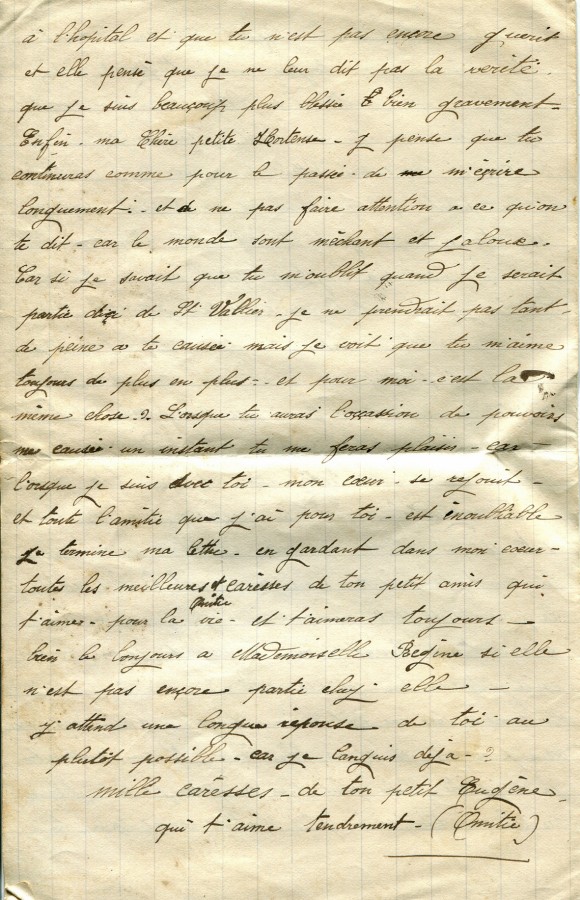 à l'hopital et que tu n'est pas encore guerit
et elle pense que je ne leur dit pas la verité.
que je suis beaucoup plus blessée E bien gravement-
Enfin. ma Chère petite Hortense - j pense que tu
continuras comme pour le passée. de m'écrire
longuement. - et de ne pas faire attention a ce qu'on
te dit - car le monde sont mèchant et jaloux.
Car si je savait que tu m'oublit quand je serait
partie d'ici de St Vallier. je ne prendrait pas tant
de peine a te causée mais je voit que tu m'aime
toujours de plus en plus - et pour moi - c'est la
même chose ?. Lorsque tu auras l'occasion de pouvoirs
me causée un instant tu me feras plaisir - car -
l'orsque je suis avec toi - mon cœur - se rejouit -
et toute l'amitie que j'ai pour toi - est inoubliable
je termine ma lettre - en gardant dans mon cœur -
toutes les meilleures et carèsses de ton petit amis qui
t'aime - pour la vie - et t'aimeras toujours -
bien le bonjours a Mademoiselle Régine si elle
n'est pas encore partie chez elle -
j attend une longue réponse de toi au
plutôt possible - car je languis déja - ?
mille carèsses - de ton petit Eugène.
qui t'aime tendrement - (Emitie)